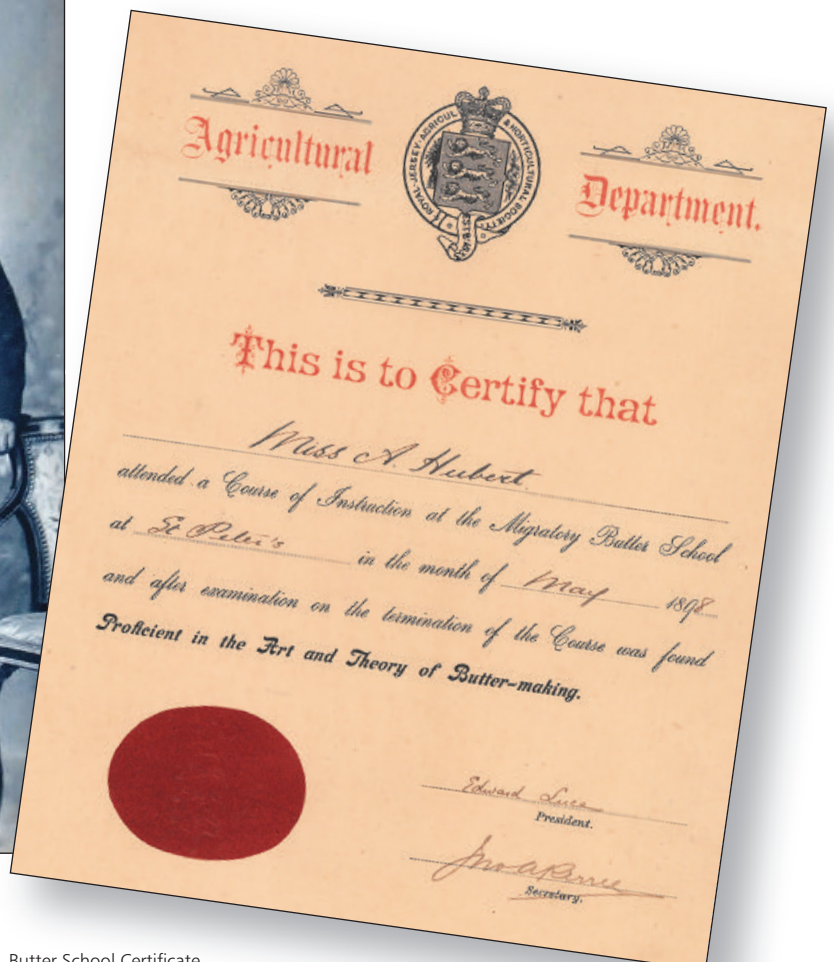 Agricultural
ROYAL JERSEY AGRICUL & HORTICULTURAL SOCIETY
Department.
This is to Certify that
Miss A. Hubert
attended a Course of Instruction at the Migratory Butter School
at St Peter's in the month of May 1898
and after examination on the termination of the Course was found
Proficient in the Art and Theory of Butter-making.
Edward Luce
President.
Secretary.
Butter School Certificate